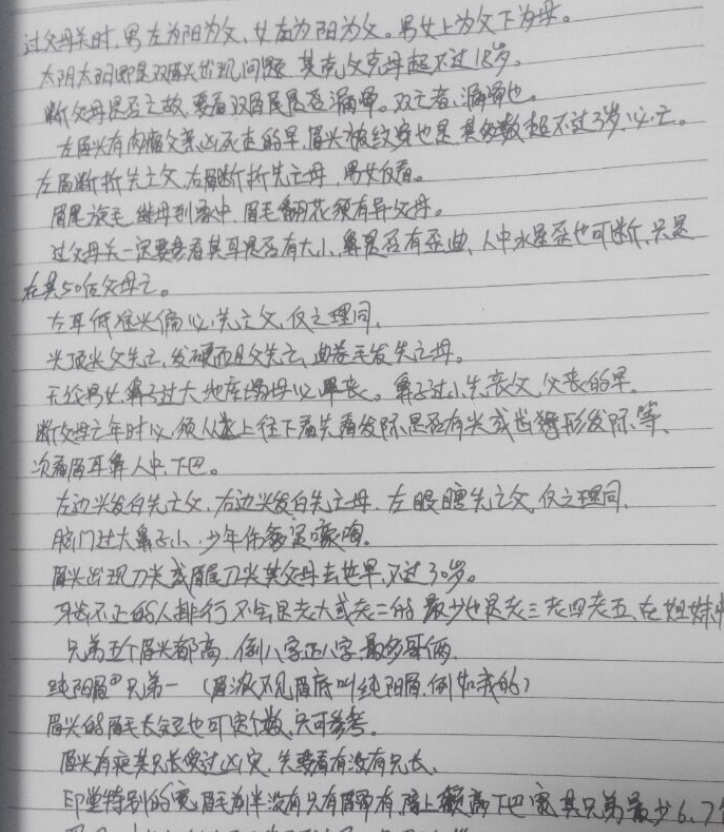 过父母关时,男左为阳为父,女右为阳为父。男女上为父下为母。
太阴太阳即是双眉头出现问题 其克父克母超不过18岁。
断父母是否亡故,要看双眉尾是否漏。双亡者,漏也。
左眉头有肉瘤父亲凶死走的早,眉头被纹穿也是,其岁数超不过3岁,必亡。
左眉断折先亡父,右眉断折先亡母,男女反看。
眉尾旋毛 继母到家中,眉毛翻花须有异父母。
过父母关一定要先看其耳是否有大小,鼻是否有歪曲,人中水是歪也可断,只是
在其50位父母亡。
左耳低准头偏必先亡父,反之理同,
头顶尖父先亡,发硬而且父先亡,曲卷毛发先亡母。
无论男女,鼻子过大地库塌母必早丧。鼻子过小先丧父,父丧的早,
断父母亡年时必须从上往下看先看发际是否有尖或齿形发际等,
次看眉耳鼻人中,下巴。
左边头发白先亡父,右边头发白先亡母,左眼瞎先亡父,反之理同,
脑门过大鼻子小,少年伤爹
眉头出现刀尖或眉尾刀尖其父母去世早,不过30岁。
牙齿不正的人排行不会是老大或老二的 最少也是老三老四老五,在姐妹中
兄弟五个眉头都高,倒八字正八字最多哥俩,
纯阳眉 兄弟一 (眉浓不见眉底叫纯阳眉,例如我的)
眉头的眉毛长短也可定个数,只可参考,
眉头有疤其兄长受过凶灾,先要看有没有兄长、
印堂特别的宽,眉毛前半没有只有眉尾有,高下巴宽 其兄弟最少6、7